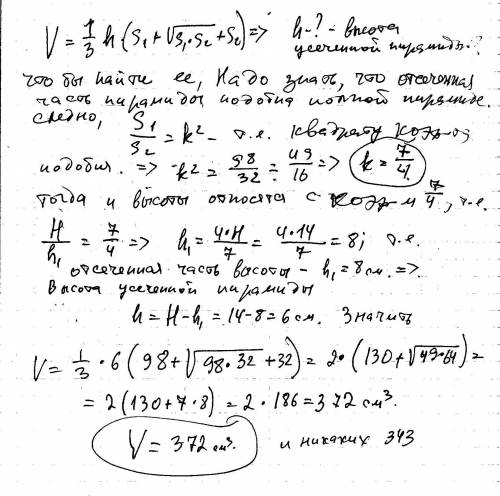 V = 1/3 h (S₁ + √S₁·S₂ + S₂) => h-? - высота
усеченной пирамиды?
что бы найти ее, Надо знать, что отсеченная
часть пирамиды подобна полной пирамиде.
следно, S₁/S₂ = k² - т.е. квадрату коэф
подобия. => k² = 98/32 = 49/16 => k = 7/4
тогда и высоты относятся с коэф 7/4, т.е.
H/h₁ = 7/4 => h₁ = 4·H/7 = 4·14/7 = 8; т.е.
отсеченная часть высоты - h₁ = 8 см. =>
Высота усеченной пирамиды
h = H - h₁ = 14 - 8 = 6 см. Значить
V = 1/3 · 6 (98 + √98·32 + 32) = 2·(130 + √49·64) =
= 2(130 + 7·8) = 2·186 = 372 см³.
V = 372 см³. и никаких 343